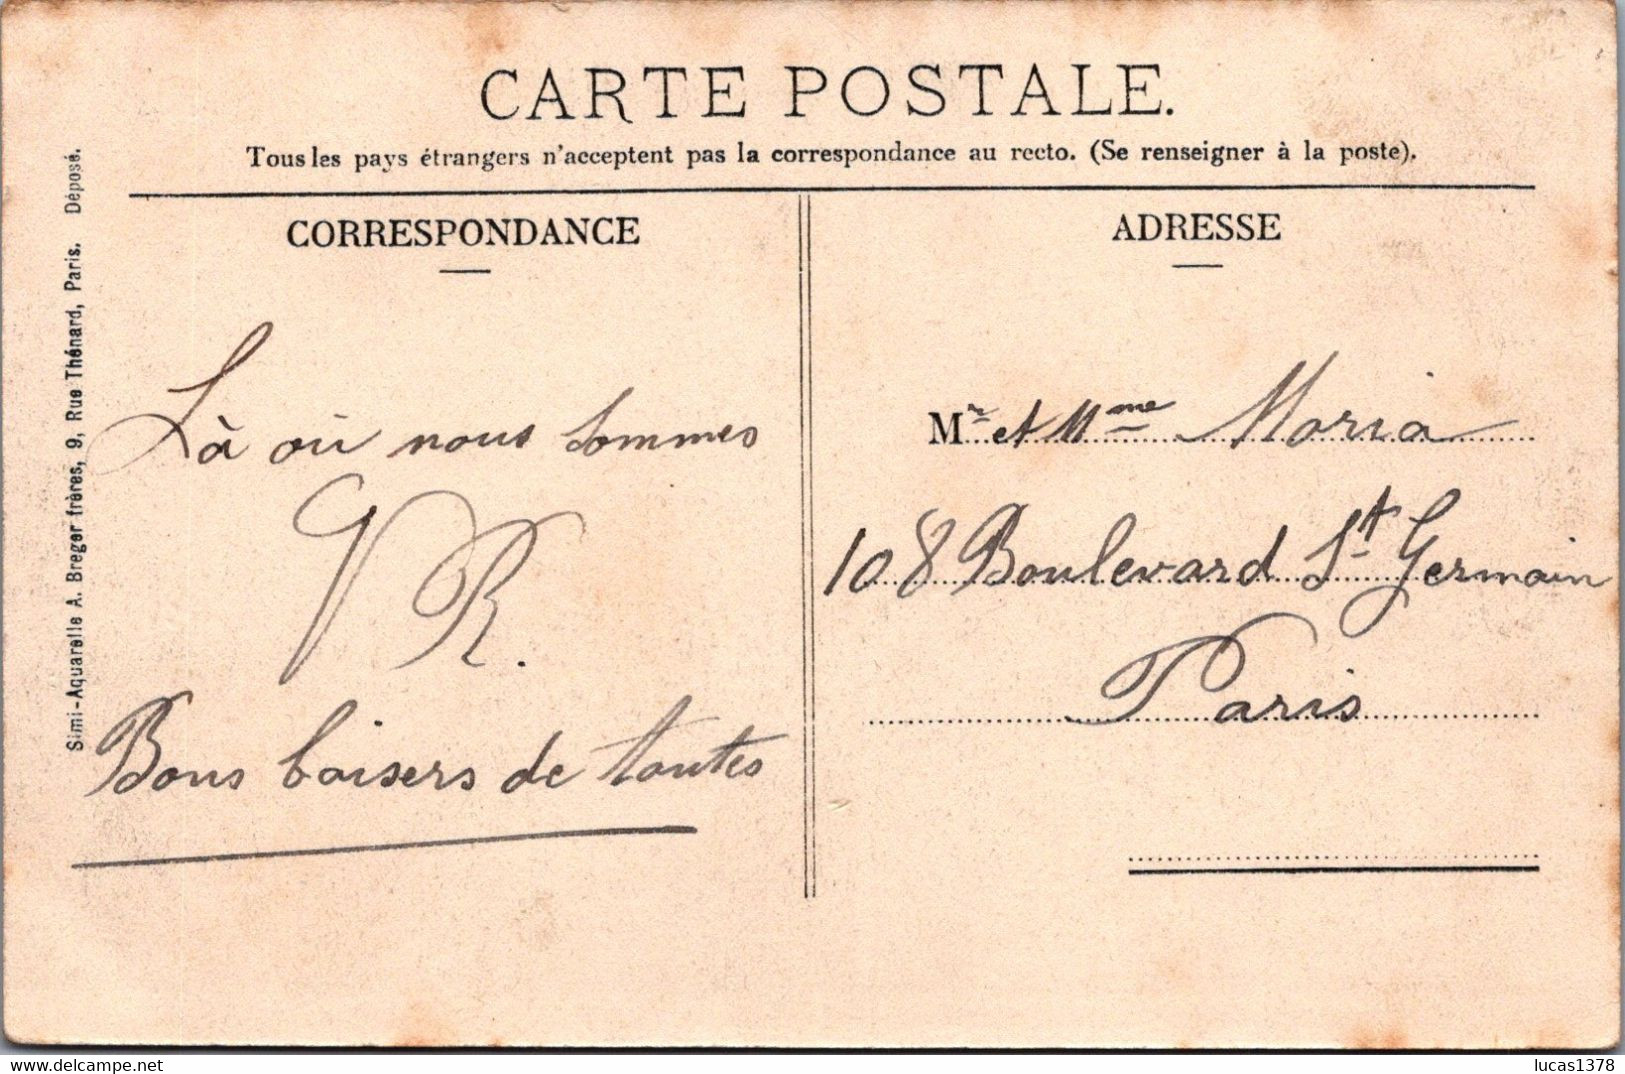 CARTE POSTALE.
Tous les pays étrangers n'acceptent pas la correspondance au recto. (Se renseigner à la poste).
Simi-Aquarelle A. Breger frères, 9, Rue Thénard, Paris. Déposé.
CORRESPONDANCE
Là où nous sommes
VR.
Bons baisers de toutes
ADRESSE
Mr et Mme Moria
108 Boulevard St Germain
Paris
delcampe.net
lucas1378